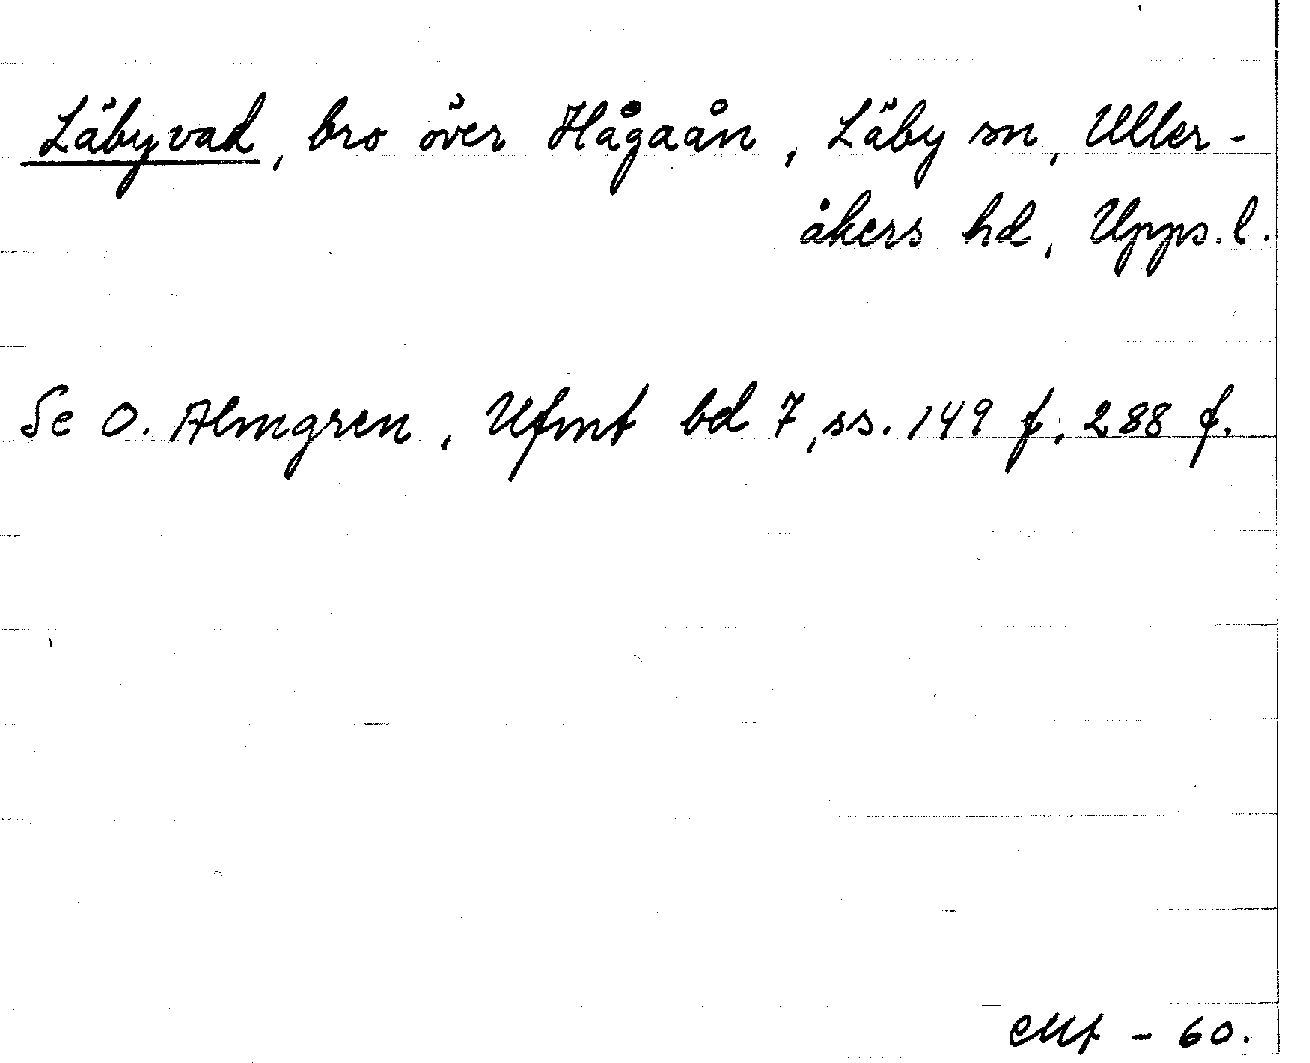 Läbyvad, bro över Hågaån, Läby sn, Uller-
åkers hd, Upps. l.
Se O. Almgren, Ufmt bd 7, ss. 149 f, 288 f.
- 60.